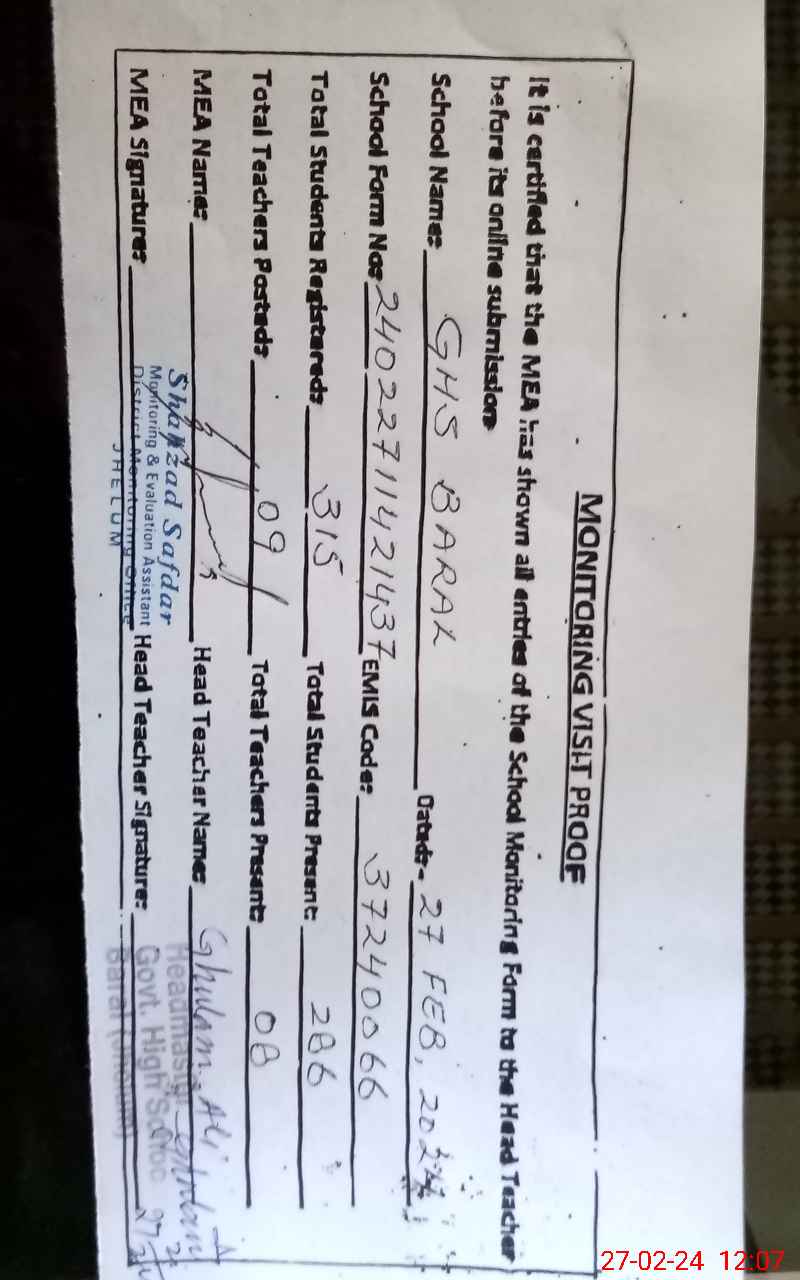 MONITORING VISIT PROOF
It is certified that the MEA has shown all entries of the School Monitoring Form to the Head Teacher
before its online submission
School Name: GHS BARAL Dated:- 27 FEB, 2024
School Form No: 24022711421437 EMIS Code: 37240066
Total Students Registered: 315 Total Students Present: 286
Total Teachers Posted: 09 Total Teachers Present: 08
MEA Name: Head Teacher Name: Ghulam Ali
Shahzad Safdar
Monitoring & Evaluation Assistant
District Monitoring Office
JHELUM
MEA Signature: Head Teacher Signature:
Headmaster
Govt. High School
Baral (Jhelum)
27-02-24 12:07